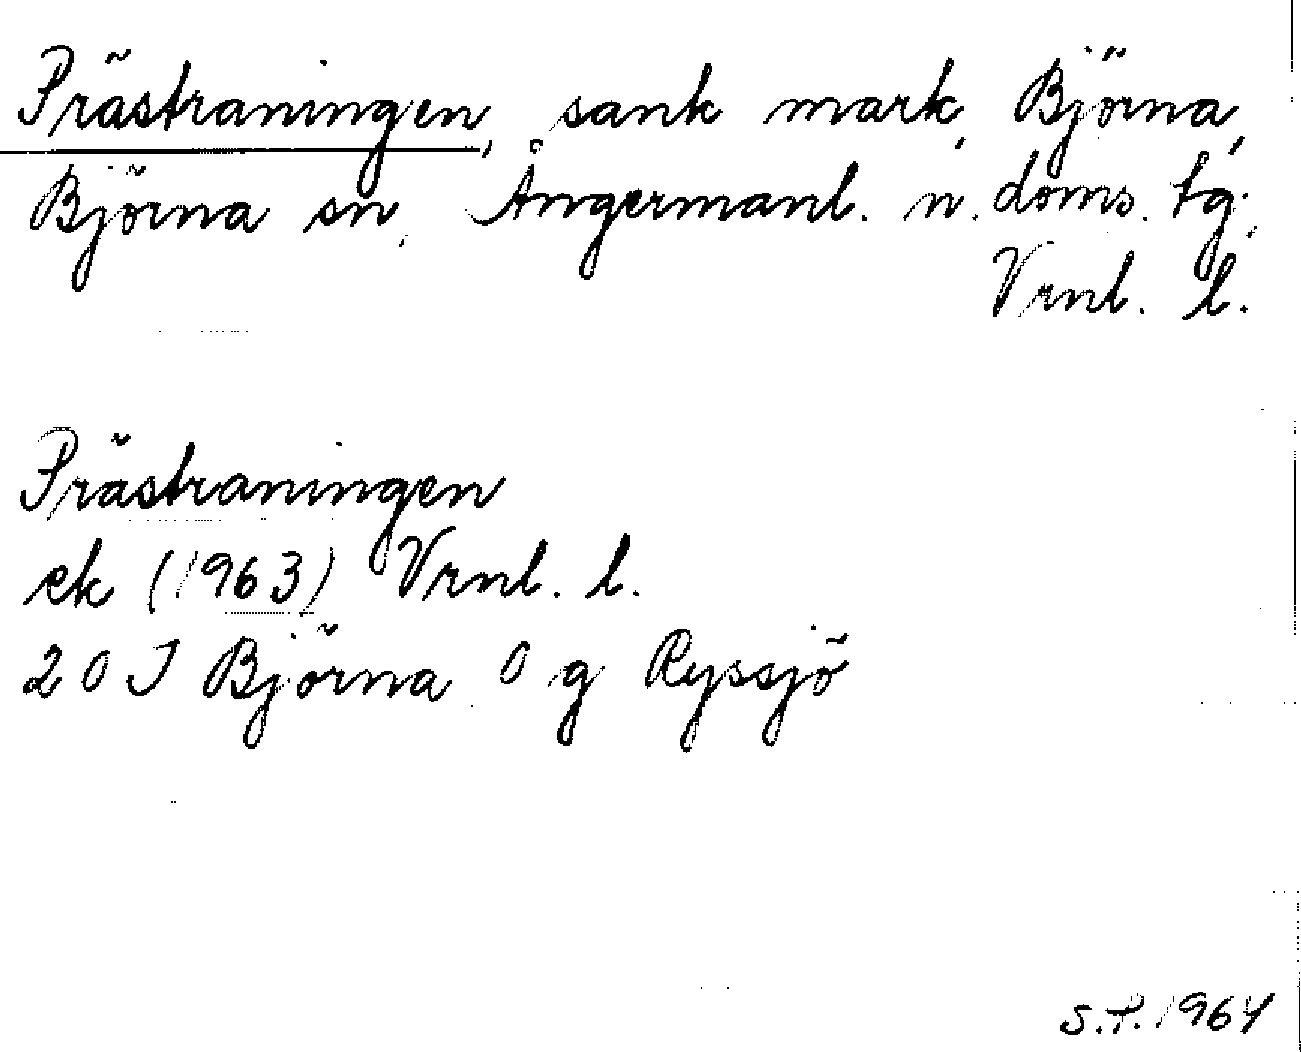 Prästraningen, sank mark, Björna,
Björna sn, Ångermanl. n. doms. tg,
Vrnl. l.
Prästraningen
ek (1963) Vrnl. l.
20 J Björna 0 g Ryssjö
S.P. 1964